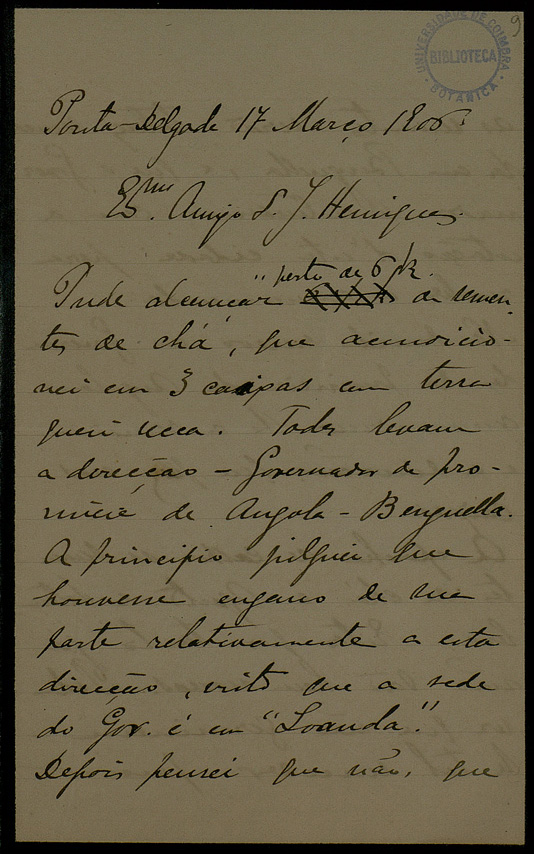 9
UNIVERSIDADE DE COIMBRA
BIBLIOTECA
BOTANICA
Ponta-Delgada 17 Março 1906.
Ex.mo Amigo S. J. Henriques.
Pude alcançar perto de 6 k. de semen-
tes de chá, que acondicio-
nei em 3 caixas com terra
quasi secca. Todas levam
a direcção - Governador da pro-
vincia de Angola - Benguella.
A principio julguei que
houvesse engano de sua
parte relativamente a esta
direcção, visto que a sede
do Gov. é em "Loanda".
Depois pensei que não, que